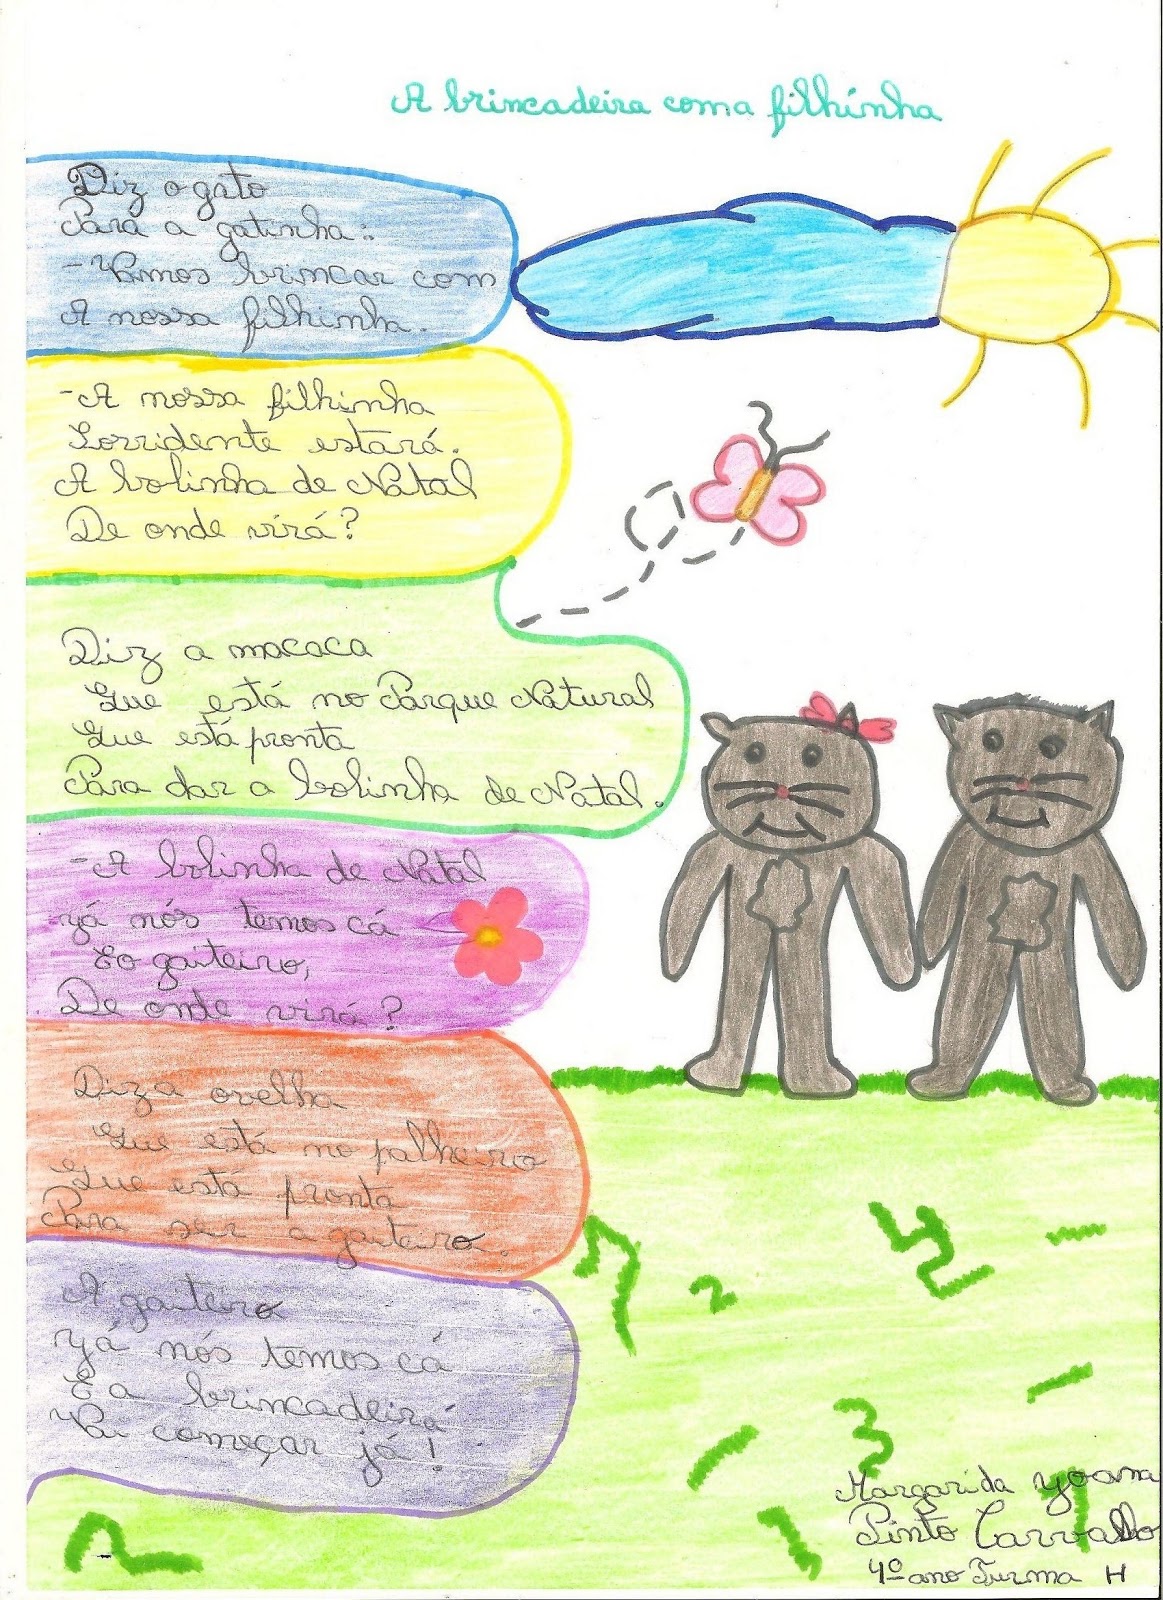 A brincadeira com a filhinha
Diz o gato
Para a gatinha:
-Vamos brincar com
A nossa filhinha.
-A nossa filhinha
Sorridente estará.
A bolinha de Natal
De onde virá?
Diz a macaca
Que está no Parque Natural
Que está pronta
Para dar a bolinha de Natal.
-A bolinha de Natal
Já nós temos cá
E o gaiteiro,
De onde virá?
Diz a ovelha
Que está no palheiro
Que está pronta
Para ser a gaiteiro.
A gaiteiro
Já nós temos cá
E a brincadeirá
Vai começar já!
Margarida Yoana
Pinto Carvalho
4º ano Turma H